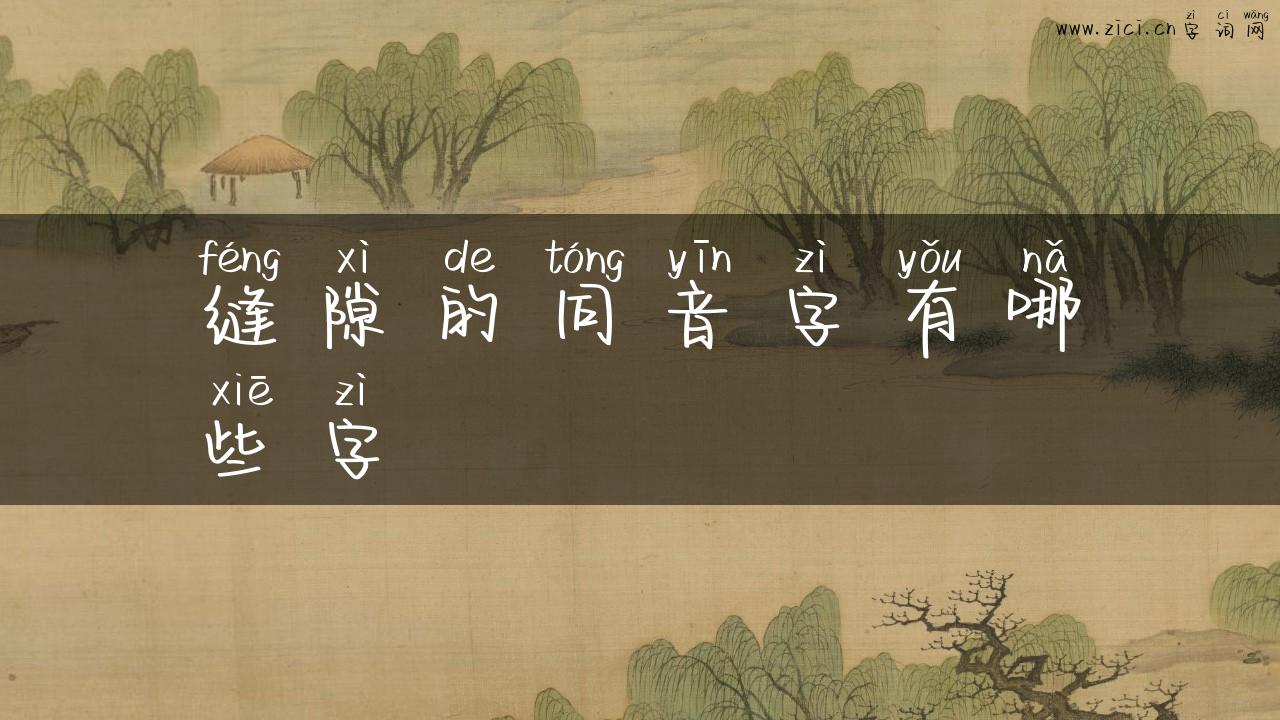 zì cí wǎng
www.zici.cn 字词网
féng xì de tóng yīn zì yǒu nǎ
缝隙的同音字有哪
xiē zì
些字